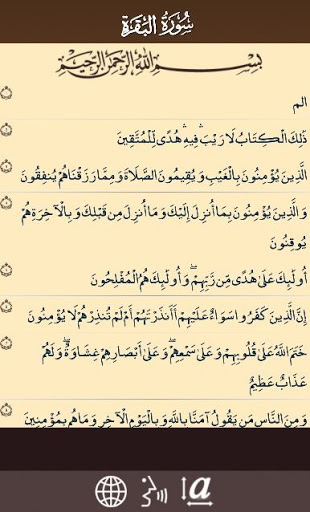 سُورَةُ البَقَرَةِ
بِسْمِ اللَّهِ الرَّحْمَٰنِ الرَّحِيمِ
الم
ذَٰلِكَ الْكِتَابُ لَا رَيْبَ ۛ فِيهِ ۛ هُدًى لِّلْمُتَّقِينَ
الَّذِينَ يُؤْمِنُونَ بِالْغَيْبِ وَيُقِيمُونَ الصَّلَاةَ وَمِمَّا رَزَقْنَاهُمْ يُنفِقُونَ
وَالَّذِينَ يُؤْمِنُونَ بِمَا أُنزِلَ إِلَيْكَ وَمَا أُنزِلَ مِن قَبْلِكَ وَبِالْآخِرَةِ هُمْ
يُوقِنُونَ
أُولَٰئِكَ عَلَىٰ هُدًى مِّن رَّبِّهِمْ ۖ وَأُولَٰئِكَ هُمُ الْمُفْلِحُونَ
إِنَّ الَّذِينَ كَفَرُوا سَوَاءٌ عَلَيْهِمْ أَأَنذَرْتَهُمْ أَمْ لَمْ تُنذِرْهُمْ لَا يُؤْمِنُونَ
خَتَمَ اللَّهُ عَلَىٰ قُلُوبِهِمْ وَعَلَىٰ سَمْعِهِمْ ۖ وَعَلَىٰ أَبْصَارِهِمْ غِشَاوَةٌ ۖ وَلَهُمْ
عَذَابٌ عَظِيمٌ
وَمِنَ النَّاسِ مَن يَقُولُ آمَنَّا بِاللَّهِ وَبِالْيَوْمِ الْآخِرِ وَمَا هُم بِمُؤْمِنِينَ
a